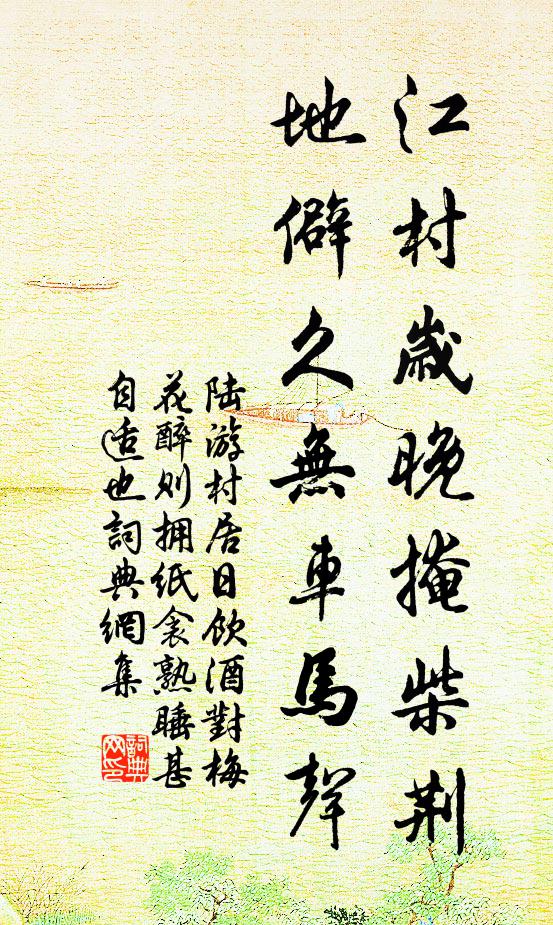 江村歲晚掩柴荆
地僻久無車馬聲
陆游村居日飲酒對梅
花醉則拥紙衾熟睡甚
自适也詞典網集
詞典
网印